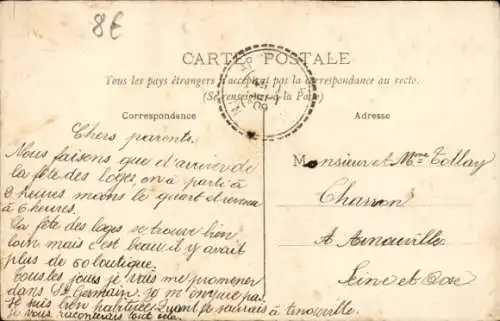 8€
CARTE POSTALE
Tous les pays étrangers n'acceptent pas la correspondance au recto.
(Se renseigner à la Poste)
Correspondance
Adresse
Chers parents
Nous faisons que d'arriver de
la fête des loges, on a parti à
2 heures moins le quart et revenu
à 6 heures.
La fête des loges se trouve bien
loin mais c'est beau il y avait
plus de 60 boutique.
Tous les jours je vais me promener
dans St Germain. Je m'ennuie pas
Je suis bien habituée. Quant je saurais à
je vous raconterais tout cela
Monsieur et Mme Tollay
Charron
A Arnouville
Seine et Oise